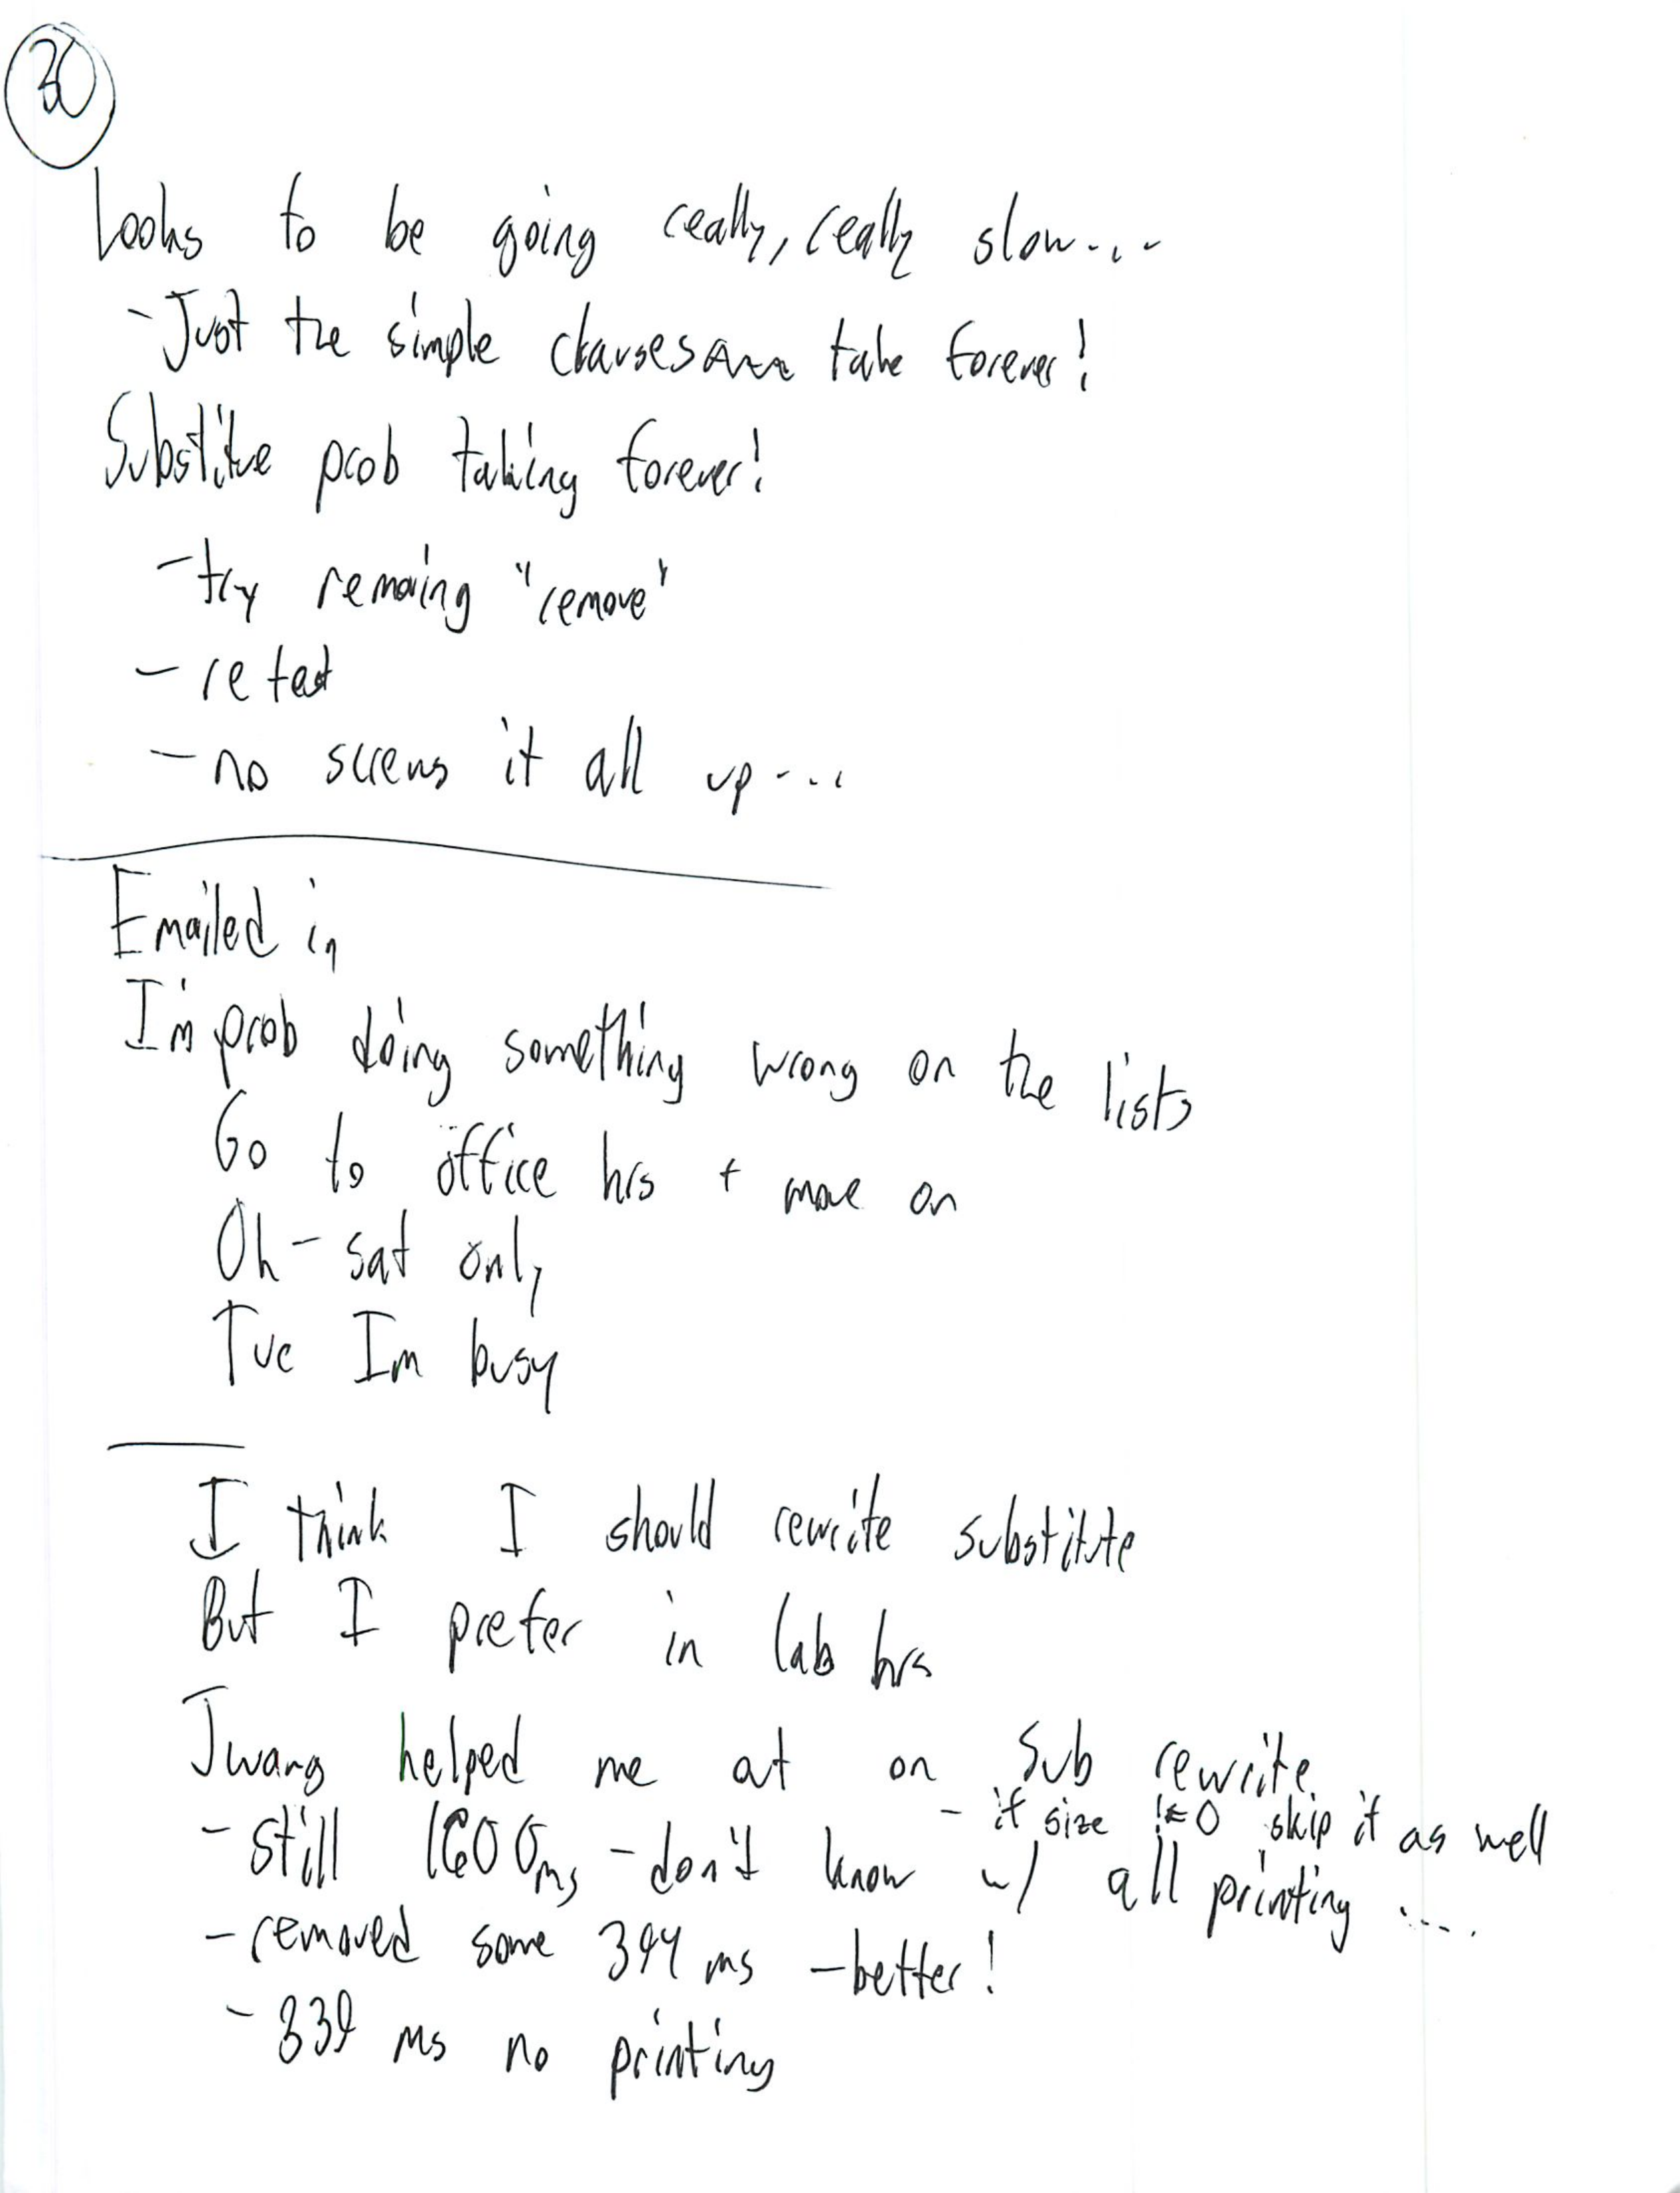 30
Looks to be going really, really slow...
- Just the simple clauses take forever!
Substitue prob taking forever!
- try removing "remove"
- re test
- no screws it all up...
Emailed in
I'm prob doing something wrong on the lists
Go to office hrs + move on
Oh - sat only
Tue Im busy
I think I should rewrite substitute
But I prefer in lab hrs
Jwang helped me at on Sub rewrite
- if size != 0 skip it as well
- still 1600ms - don't know w/ all printing ....
- removed some 394 ms - better!
- 339 ms no printing